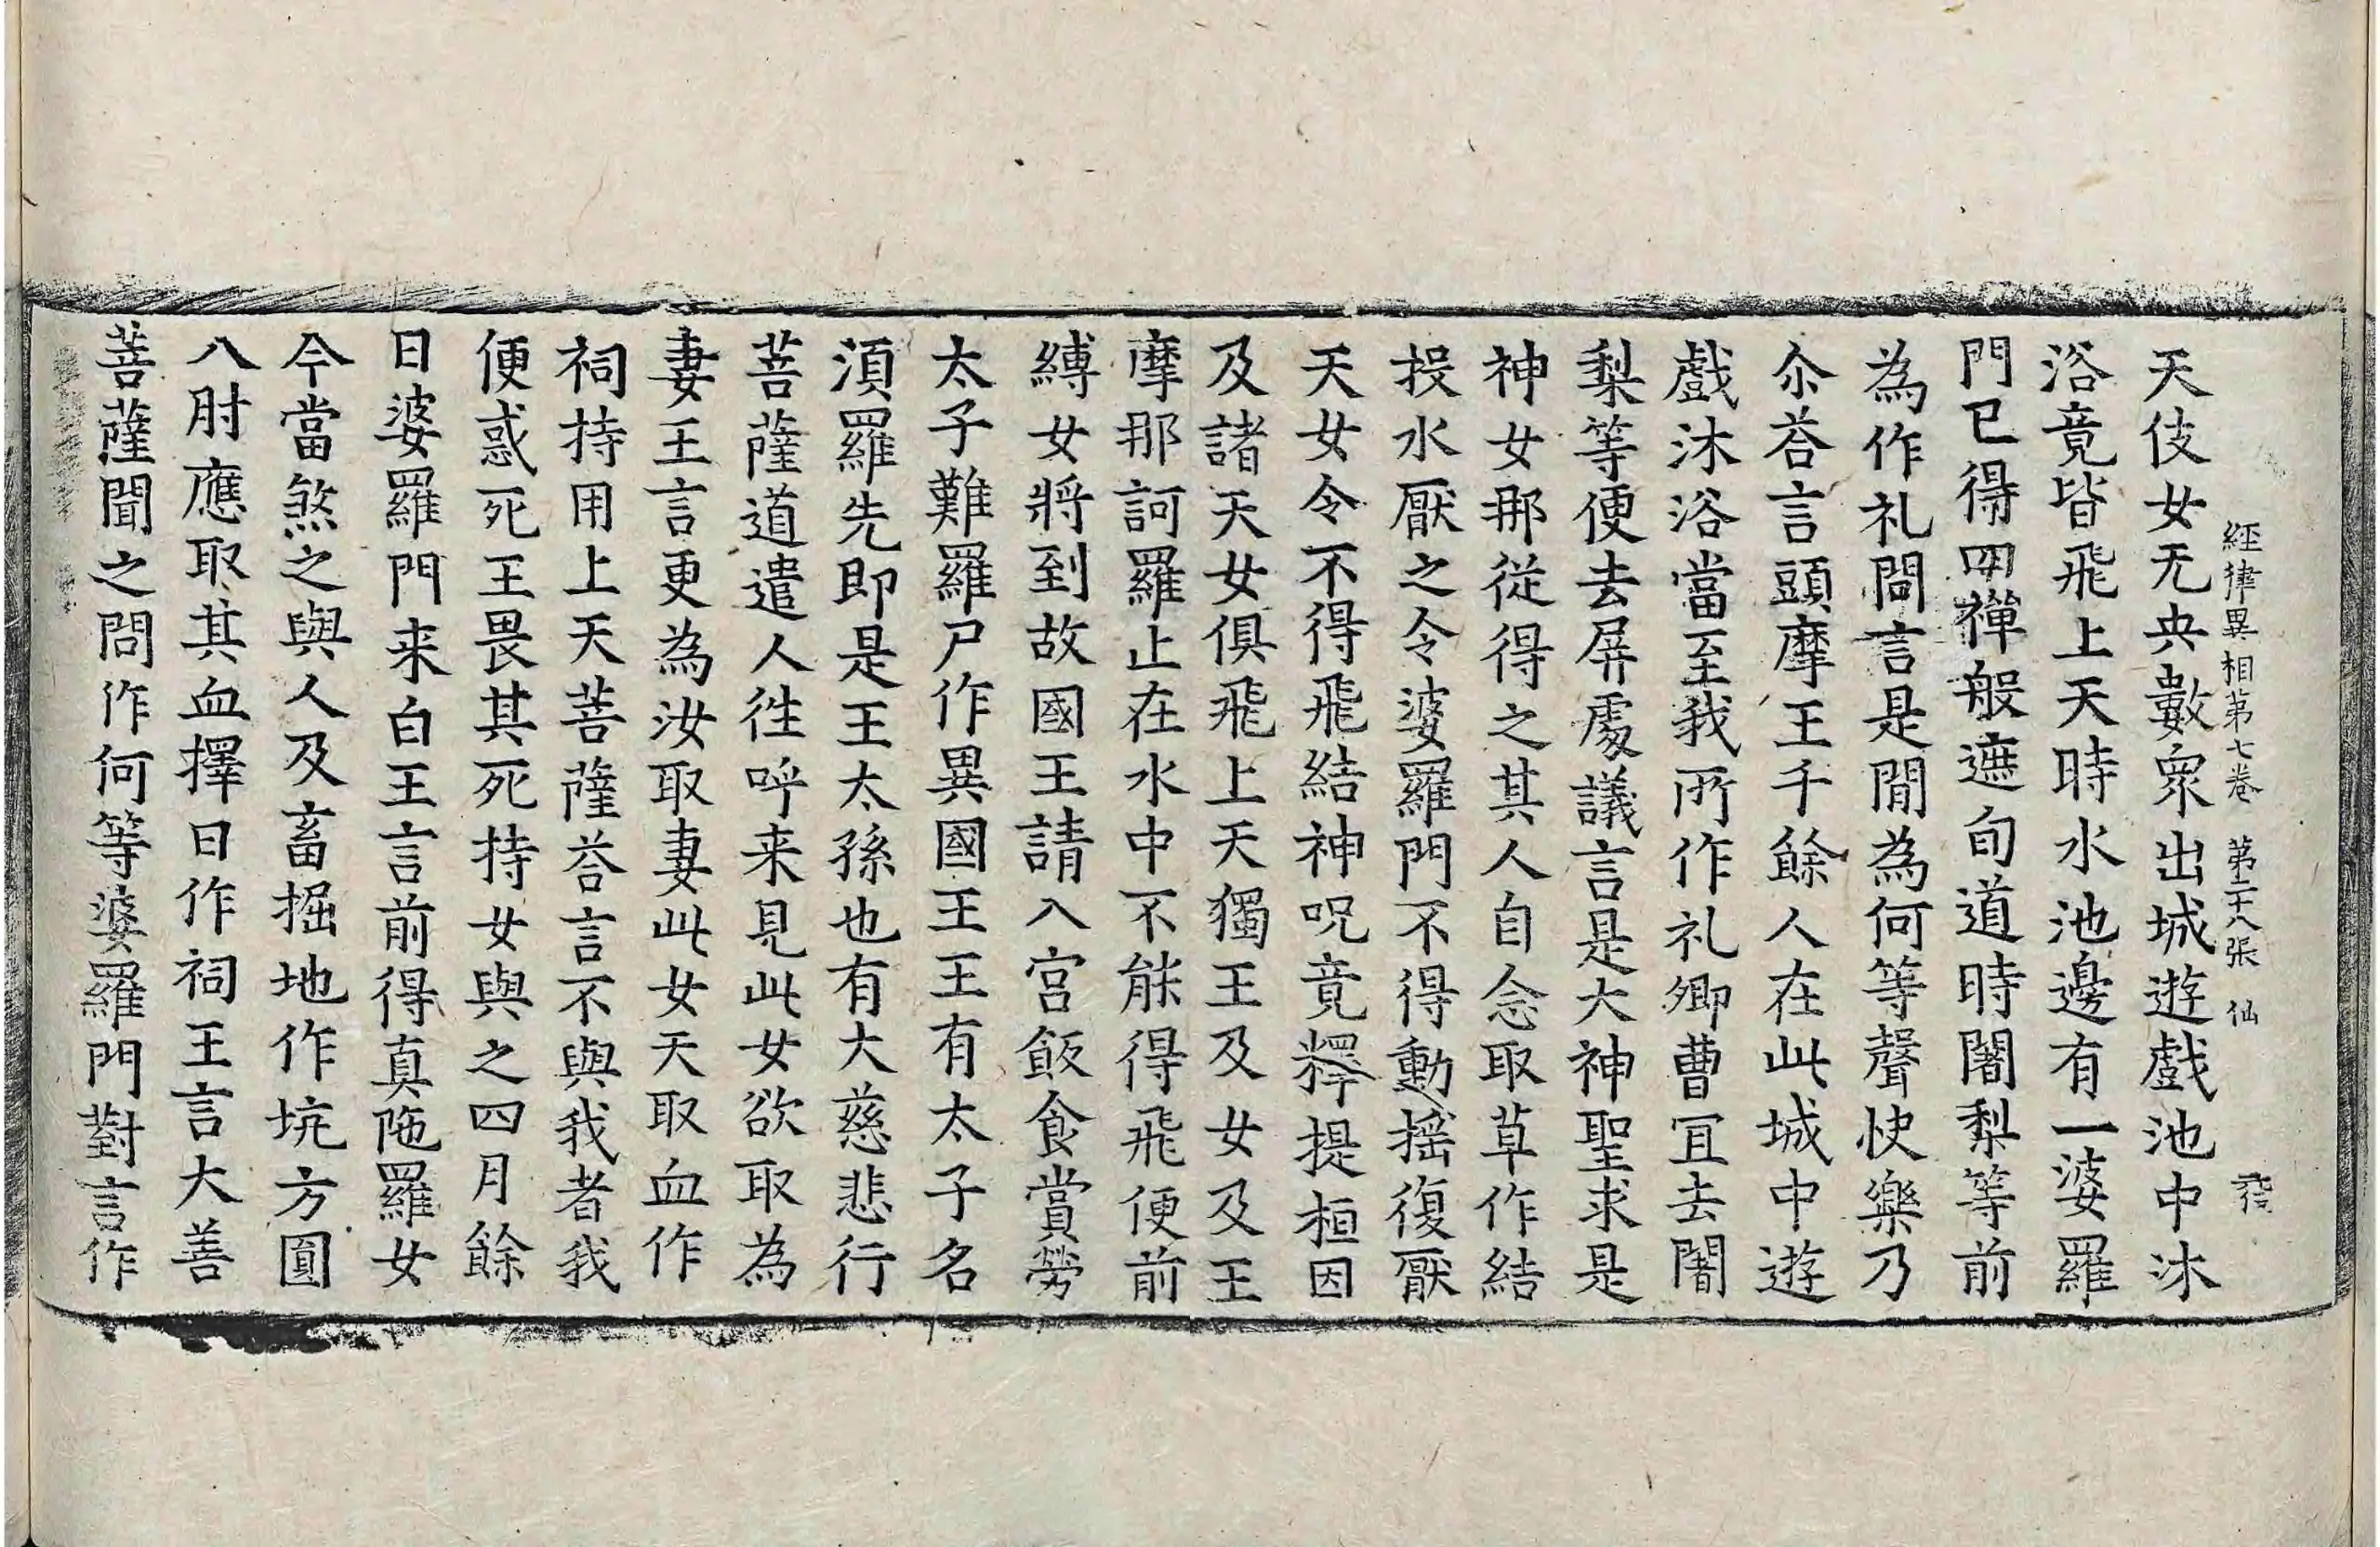 經律異相第七卷 第二十八張 仙
天伎女无央數衆出城遊戲池中沐
浴竟皆飛上天時水池邊有一婆羅
門已得四禪般遮旬道時闍梨等前
為作礼問言是間為何等聲快樂乃
尒荅言頭摩王千餘人在此城中遊
戲沐浴當至我所作礼卿曹冝去闍
梨等便去屏處議言是大神聖求是
神女那從得之其人自念取草作結
投水厭之令婆羅門不得動揺復厭
天女令不得飛結神呪竟釋提桓因
及諸天女俱飛上天獨王及女及王
摩那訶羅止在水中不能得飛便前
縛女將到故國王請入宮飯食賞勞
太子難羅尸作異國王王有太子名
湏羅先即是王太孫也有大慈悲行
菩薩道遣人徃呼来見此女欲取為
妻王言更為汝取妻此女天取血作
祠持用上天菩薩荅言不與我者我
便惑死王畏其死持女與之四月餘
日婆羅門来白王言前得真陁羅女
今當煞之與人及畜掘地作坑方圓
八肘應取其血擇日作祠王言大善
菩薩聞之問作何等婆羅門對言作